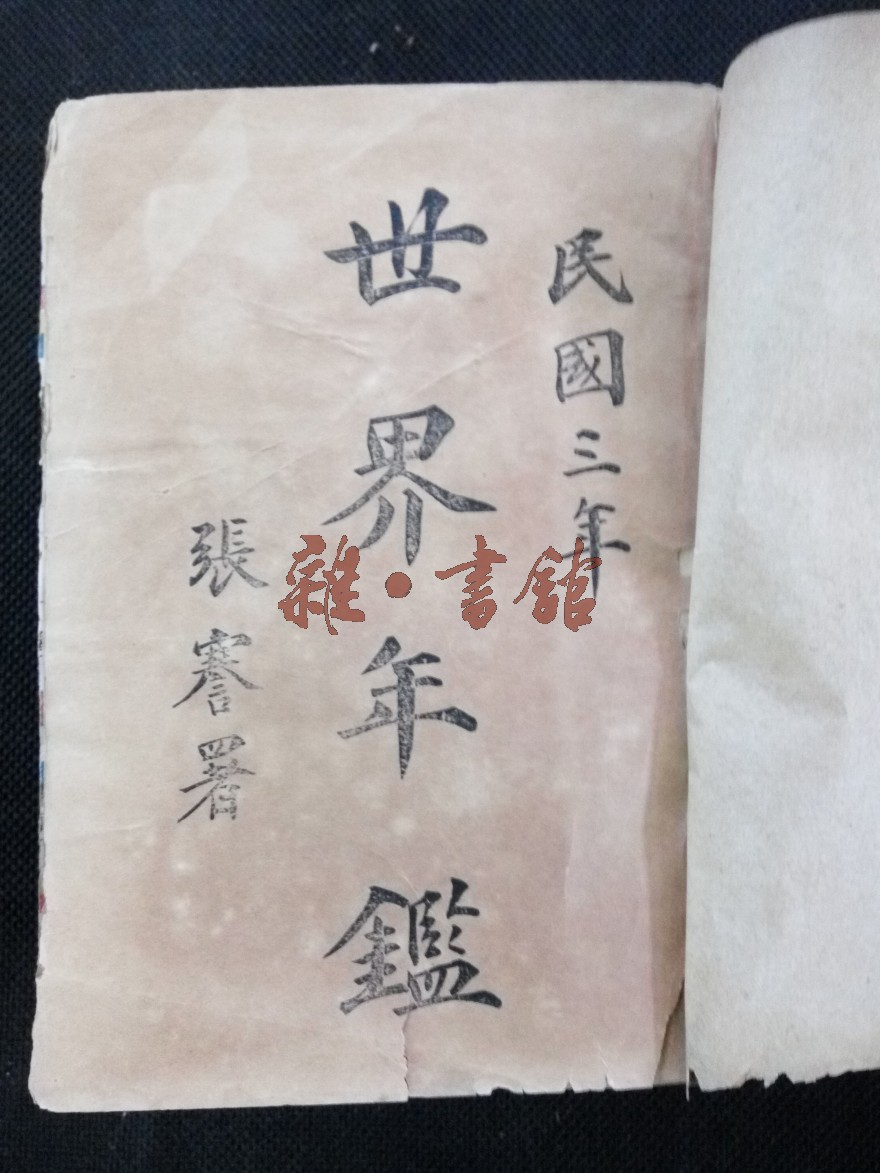 民國三年
世界年鑑
張謇署
雜·書館